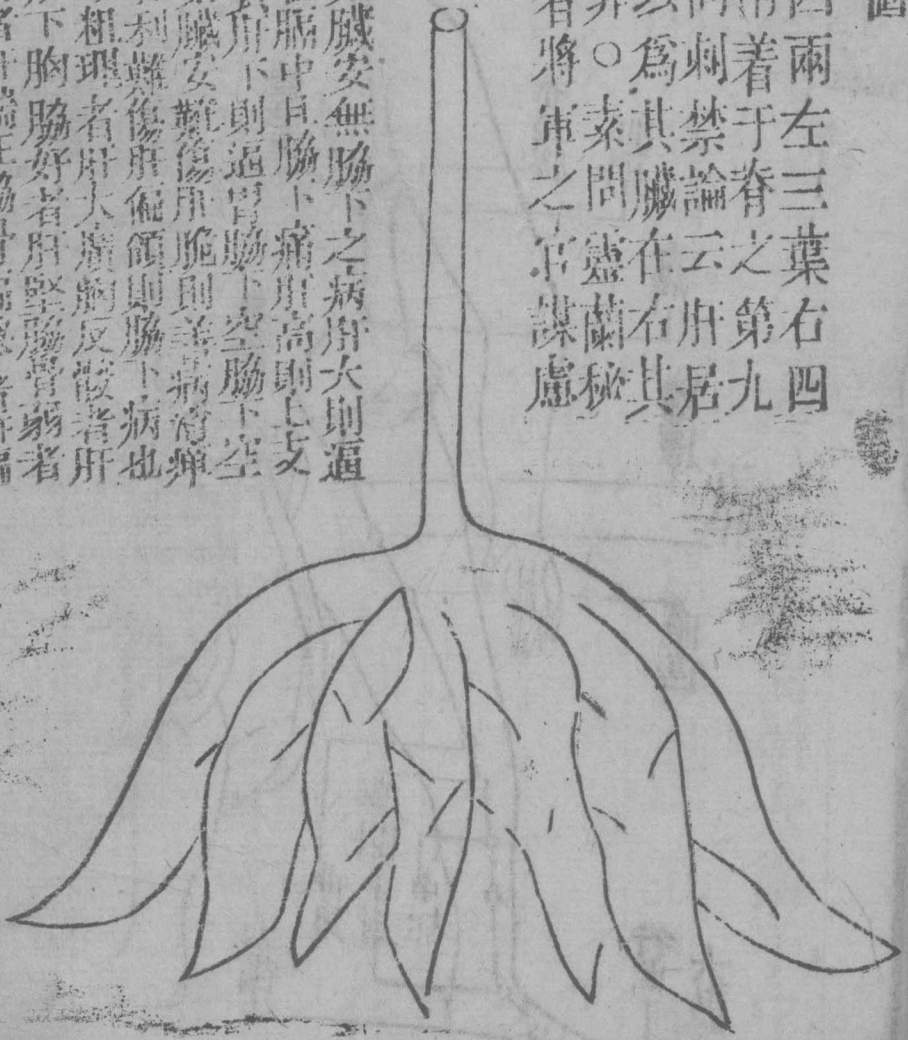 兩左三葉右四
着于脊之第九
刺禁論云肝居
爲其臟在右其
○素問靈蘭秘
將軍之官謀慮
臟安無脇下之病肝大則逼
膈中且脇下痛肝高則上支
肝下則逼胃脇下空脇下空
臟安難傷肝脆則善病消癉
利難傷肝偏傾則脇下痛也
粗理者肝大廣胸反骹者肝
下胸脇好者肝堅脇骨弱者